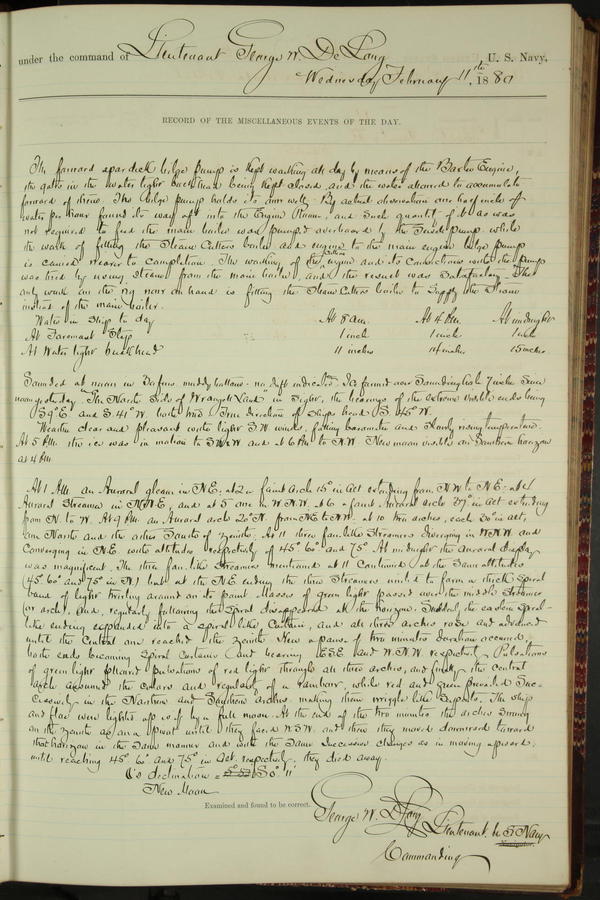 under the command of Lieutenant George W. De Long U. S. Navy,
Wednesday February 11th, 1880
RECORD OF THE MISCELLANEOUS EVENTS OF THE DAY.
The forward spar deck bilge pump is kept working all day by means of the Baxter Engine,
the gates in the water tight bulkhead being kept closed and the water allowed to accumulate
forward of them. The bilge pump holds its own well. By actual observation one half inch of
water per hour found its way aft into the Engine Room and such quantity of it as was
not required to feed the main boiler was pumped overboard by the Feed pump while
the work of fitting the Steam Cutters boiler and engine to the main engine bilge pump
is carried nearer to completion. The working of the Cutters engine and its connections with the pump
was tried by using steam from the main boiler, and the result was Satisfactory. The
only work on the rig now on hand is fitting the Steam Cutters boiler to supply the Steam
instead of the main boiler.
Water in Ship to day At 8 am. At 4 P.m. At midnight
At Foremast Step 1 inch 1 inch 1 inch
At Water tight bulkhead 11 inches 14 inches 15 inches
Sounded at noon in fms. muddy bottom - no drift indicated. Ice formed over Sounding hole 7 inches Since
noon yesterday. "The North Side of Wrangell Land" in Sight, the bearings of the extreme visible ends being
S 9° E and S. 41° W. both true. True direction of Ships head S 45° W.
Weather clear and pleasant with light S.W. winds, falling barometer and Slowly rising temperature.
At 5 P.M. the ice was in motion to S.W & W and at 6 P.M to N.W. New moon visible on Southern horizon
at 4 P.M.
At 1 A.M. an Auroral gleam in N.E; at 2 a faint arch 15° in alt extending from N.W to N.E; at
Auroral Streamer in N.N.E, and at 5 one in W.N.W. At 6 a faint Auroral arch 37° in alt extending
from N. to W. At 9 P.M. an Auroral arch 20° N. from N.E to N.W. at 10 two arches, each 30° in alt,
one North and the other South of Zenith. At 11 three fan like Streamers diverging in W.N.W. and
Converging in N.E. with altitudes respectively of 45° 60° and 75°. At midnight the Auroral display
was magnificent. The three fan like Streamers mentioned at 11 Continued at the Same altitudes
(45° 60° and 75° in N.) but at the N.E ending the three Streamers united to form a thick Spiral
band of light twirling around on its point. Masses of green light passed over the middle Streamer
(or arch) and, regularly following the Spiral disappeared at the horizon. Suddenly the eastern Spiral-
like ending expanded into a Spiral like Curtain, and all three arches rose and advanced
until the Central one reached the Zenith. Now a pause of two minutes duration occurred,
both ends becoming Spiral Curtains and bearing E.S.E. and W.N.W. respectively. Pulsations
of green light followed pulsations of red light through all three arches, and finally the central
arch assumed the colors and regularity of a rainbow, while red and green prevailed Suc-
cessively in the Northern and Southern arches making them wriggle like Serpents. The Ship
and floe were lighted up as if by a full moon. At the end of the two minutes the arches Swung
on the Zenith as on a pivot until they faced W.S.W. and then they moved downward toward
that horizon in the Same manner and with the Same Succession changes as in moving upward,
until reaching 45° 60° and 75° in alt. respectively, they died away.
New Moon
Examined and found to be correct.
George W. De Long Lieutenant U. S Navy
Navigator.
Commanding